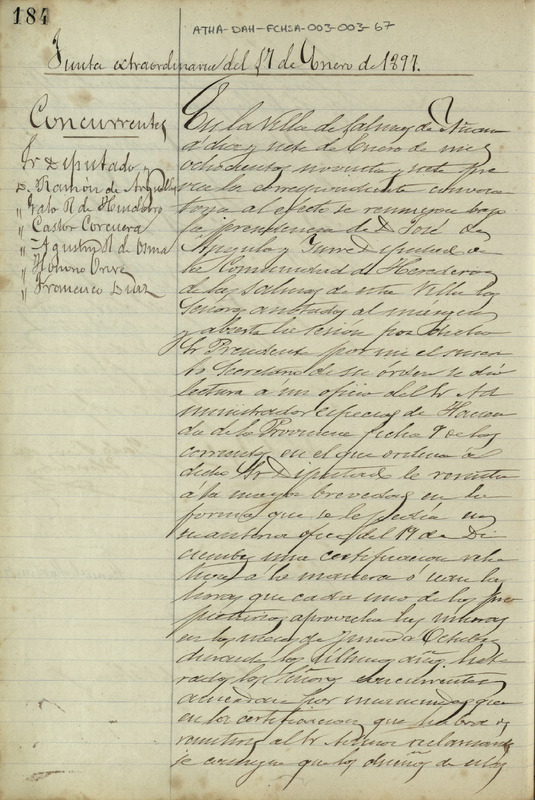 184
ATHA-DAH-FCHSA-003-003-67
Junta extraordinaria del 17 de Enero de 1897.
Concurrentes
Sr Diputado
D. Ramón de Angulo
" R. de
" Castor Corcuera
" Agustin R. de Osma
" Honorio
" Francisco Diaz
En la Villa de Salinas de Añana
a diez y siete de Enero de mil
ochocientos noventa y siete pre
via la correspondiente convoca
toria al efecto se reunieron bajo
la presidencia de D José de
Angulo y Diputado de
la Comunidad de Herederos
de las Salinas de esta Villa los
Señores anotados al margen
y abierta la sesion por dicho
Sr Presidente por mi el infras
to Secretario de su orden se dió
lectura á un oficio del Sr Ad
ministrador especial de Hacien
da de la Provincia fecha 9 de los
corrientes en el que ordena á
dicho Sr Diputado le remita
á la mayor brevedad en la
forma que se le pedía en
su anterior oficio del 19 de Di
ciembre una certificacion rela
tiva á la manera ó
horas que cada uno de los pro
pietarios aprovecha las
en los meses de Junio á Octubre
durante los últimos años.
los Señores concurrentes
acuerdan por unanimidad que
en la certificacion que habra de
remitirse al Sr reclamante
se consigne que los dueños de